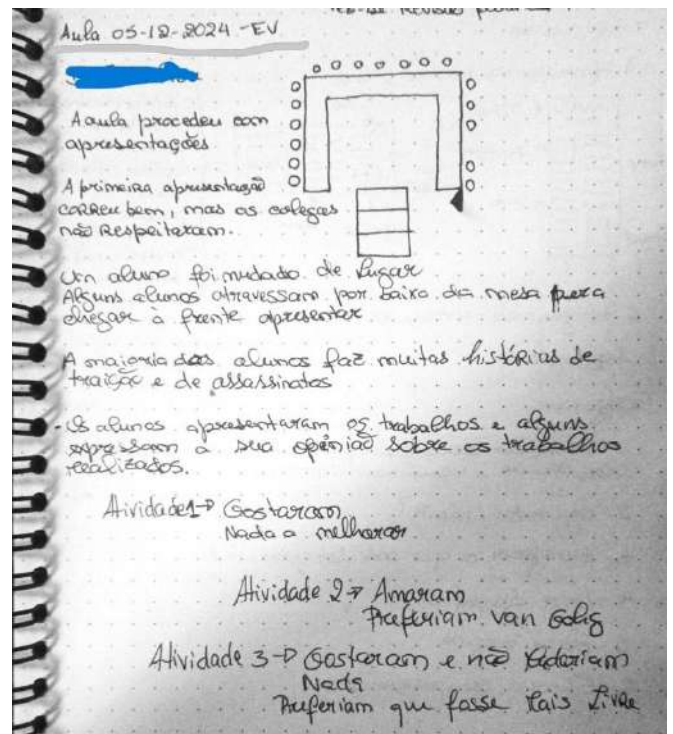 Aula 05-12-2024 - EV
A aula procedeu com
apresentações.
A primeira apresentação
correu bem, mas os colegas
não Respeitaram.
Um aluno foi mudado de lugar
Alguns alunos atravessam por baixo da mesa para
chegar à frente apresentar
A maioria dos alunos faz muitas histórias de
traição e de assassinatos
- Os alunos apresentaram os trabalhos e alguns
expressam a sua opinião sobre os trabalhos
realizados.
Atividade 1 → Gostaram
Nada a melhorar
Atividade 2 → Amaram
Preferiam van
Atividade 3 → Gostaram e não
Nada
Preferiam que fosse mais livre